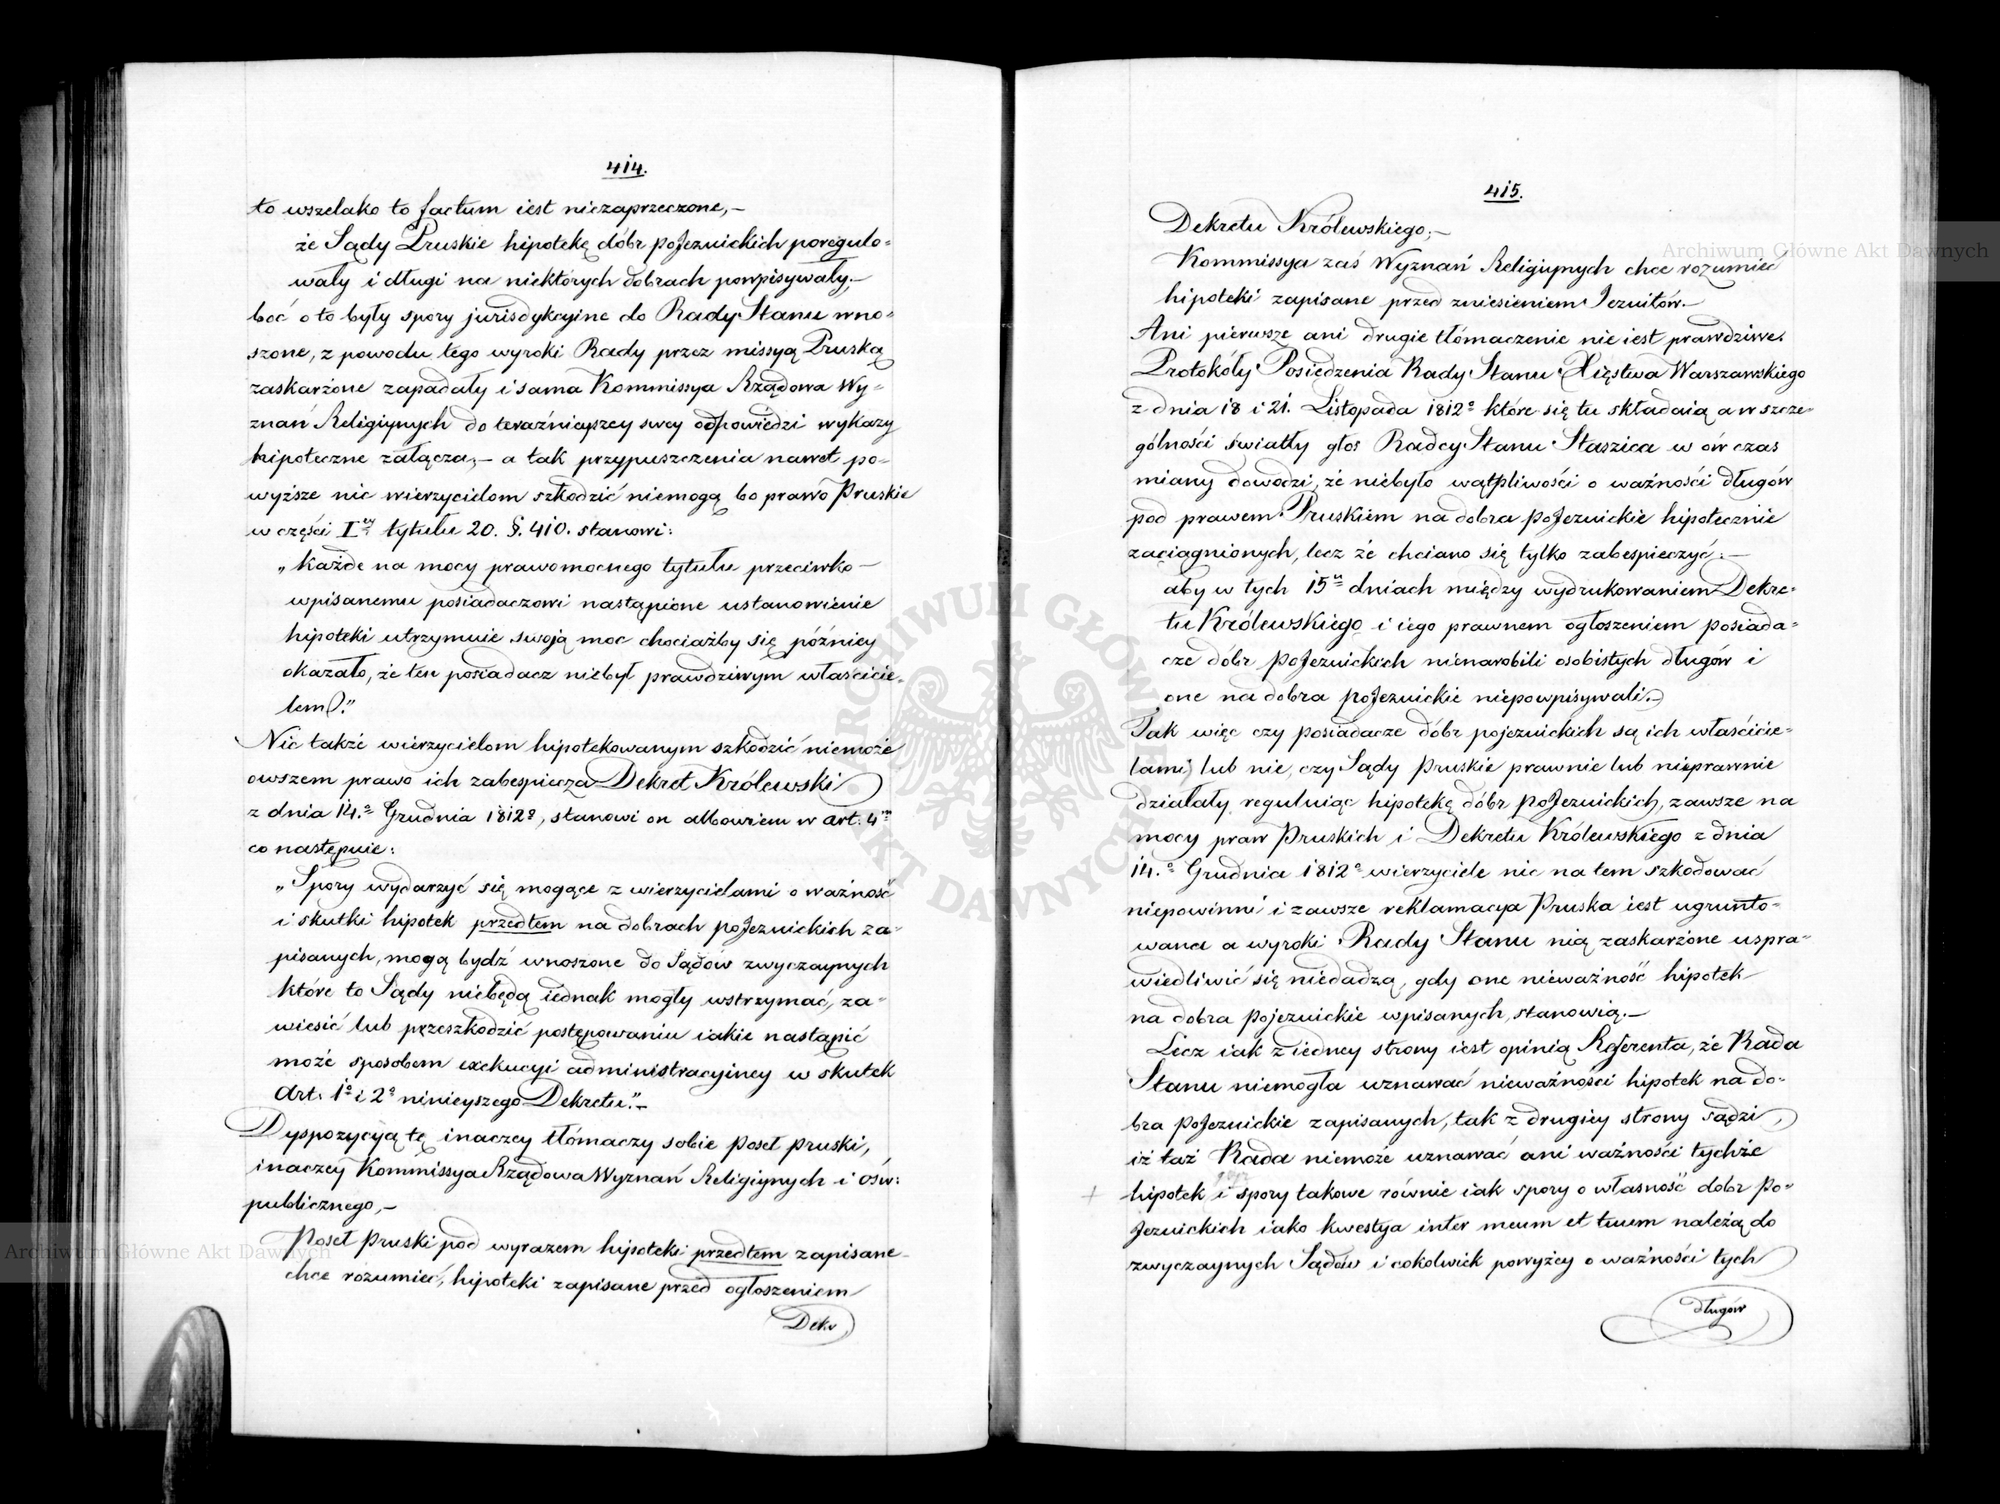 414.
to wszelako to factum iest niezaprzeczone,—
że Sądy Pruskie hipotekę dóbr pojezuickich poregulo-
wały i długi na niektórych dobrach powpisywały,—
boć o to były spory jurisdykcyine do Rady Stanu wno-
szone, z powodu tego wyroki Rady przez missyą Pruską
zaskarżone zapadały i sama Kommissya Rządowa Wy-
znań Religiynych do teraźnieyszey swey odpowiedzi wykazy
hipoteczne załącza,— a tak przypuszczenia nawet po-
wyższe nic wierzycielom szkodzić niemogą bo prawo Pruskie
w części I tytułu 20. §. 410. stanowi:
„Każde na mocy prawomocnego tytułu przeciwko—
wpisanemu posiadaczowi nastąpione ustanowienie
hipoteki utrzymuie swoją moc chociażby się późniey
okazało, że ten posiadacz niebył prawdziwym właścicie-
lem."
Nic także wierzycielom hipotekowanym szkodzić niemoże
owszem prawo ich zabespiecza Dekret Królewski
z dnia 14.º Grudnia 1812º, stanowi on albowiem w art. 4
co następuie:
„Spory wydarzyć się mogące z wierzycielami o ważność
i skutki hipotek przedtem na dobrach pojezuickich za-
pisanych, mogą bydź wnoszone do Sądów zwyczaynych
które to Sądy niebędą iednak mogły wstrzymać, za-
wiesić lub przeszkodzić postępowaniu iakie nastąpić
może sposobem exekucyi administracyiney w skutek
Art. 1º i 2º ninieyszego Dekretu."—
Dyspozycyą tę inaczey tłómaczy sobie poseł pruski,
inaczey Kommissya Rządowa Wyznań Religiynych i Ośw:
publicznego,—
Poseł Pruski pod wyrazem hipoteki przedtem zapisane
chce rozumieć, hipoteki zapisane przed ogłoszeniem
Dek
415.
Dekretu Królewskiego,—
Kommissya zaś Wyznań Religiynych chce rozumieć
hipoteki zapisane przed zniesieniem Jezuitów.—
Ani pierwsze ani drugie tłómaczenie nie iest prawdziwe.
Protokóły Posiedzenia Rady Stanu Xięstwa Warszawskiego
z dnia 18 i 21. Listopada 1812º które się tu składaią a w szcze-
gólności światły głos Radcy Stanu Staszica w ów czas
miany dowodzi, że niebyło wątpliwości o ważności długów
pod prawem Pruskiem na dobra pojezuickie hipotecznie
zaciągnionych, lecz że chciano się tylko zabespieczyć.—
aby w tych 15 dniach między wydrukowaniem Dekre-
tu Królewskiego i iego prawnem ogłoszeniem posiada-
cze dóbr pojezuickich nienarobili osobistych długów i
one na dobra pojezuickie niepowpisywali.—
Tak więc czy posiadacze dóbr pojezuickich są ich właścicie-
lami, lub nie, czy Sądy Pruskie prawnie lub nieprawnie
działały reguluiąc hipotekę dóbr pojezuickich, zawsze na
mocy praw Pruskich i Dekretu Królewskiego z dnia
14.º Grudnia 1812º wierzyciele nic na tem szkodować
niepowinni i zawsze reklamacya Pruska iest ugrunto-
wana a wyroki Rady Stanu nią zaskarżone uspra-
wiedliwić się niedadzą, gdy one nieważność hipotek
na dobra pojezuickie wpisanych, stanowią.—
Lecz iak z iedney strony iest opinią Referenta, że Rada
Stanu niemogła uznawać nieważności hipotek na do-
bra pojezuickie zapisanych, tak z drugiey strony sądzi,
iż taż Rada niemoże uznawać ani ważności tychże
hipotek i spory takowe równie iak spory o własność dobr po-
jezuickich iako kwestya inter meum et tuum należą do
zwyczaynych Sądów i cokolwiek powyżey o ważności tych
długów
Archiwum Główne Akt Dawnych
Archiwum Główne Akt Dawnych
ARCHIWUM GŁÓWNE AKT DAWNYCH